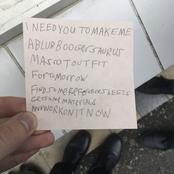 I NEED YOU TO MAKE ME
A BLUBBOOGERSAURUS
MASCOT OUTFIT
FOR TOMORROW
FIND SOME REFERENCES LETS
GET SOME MATERIALS
AND WORK ON IT NOW